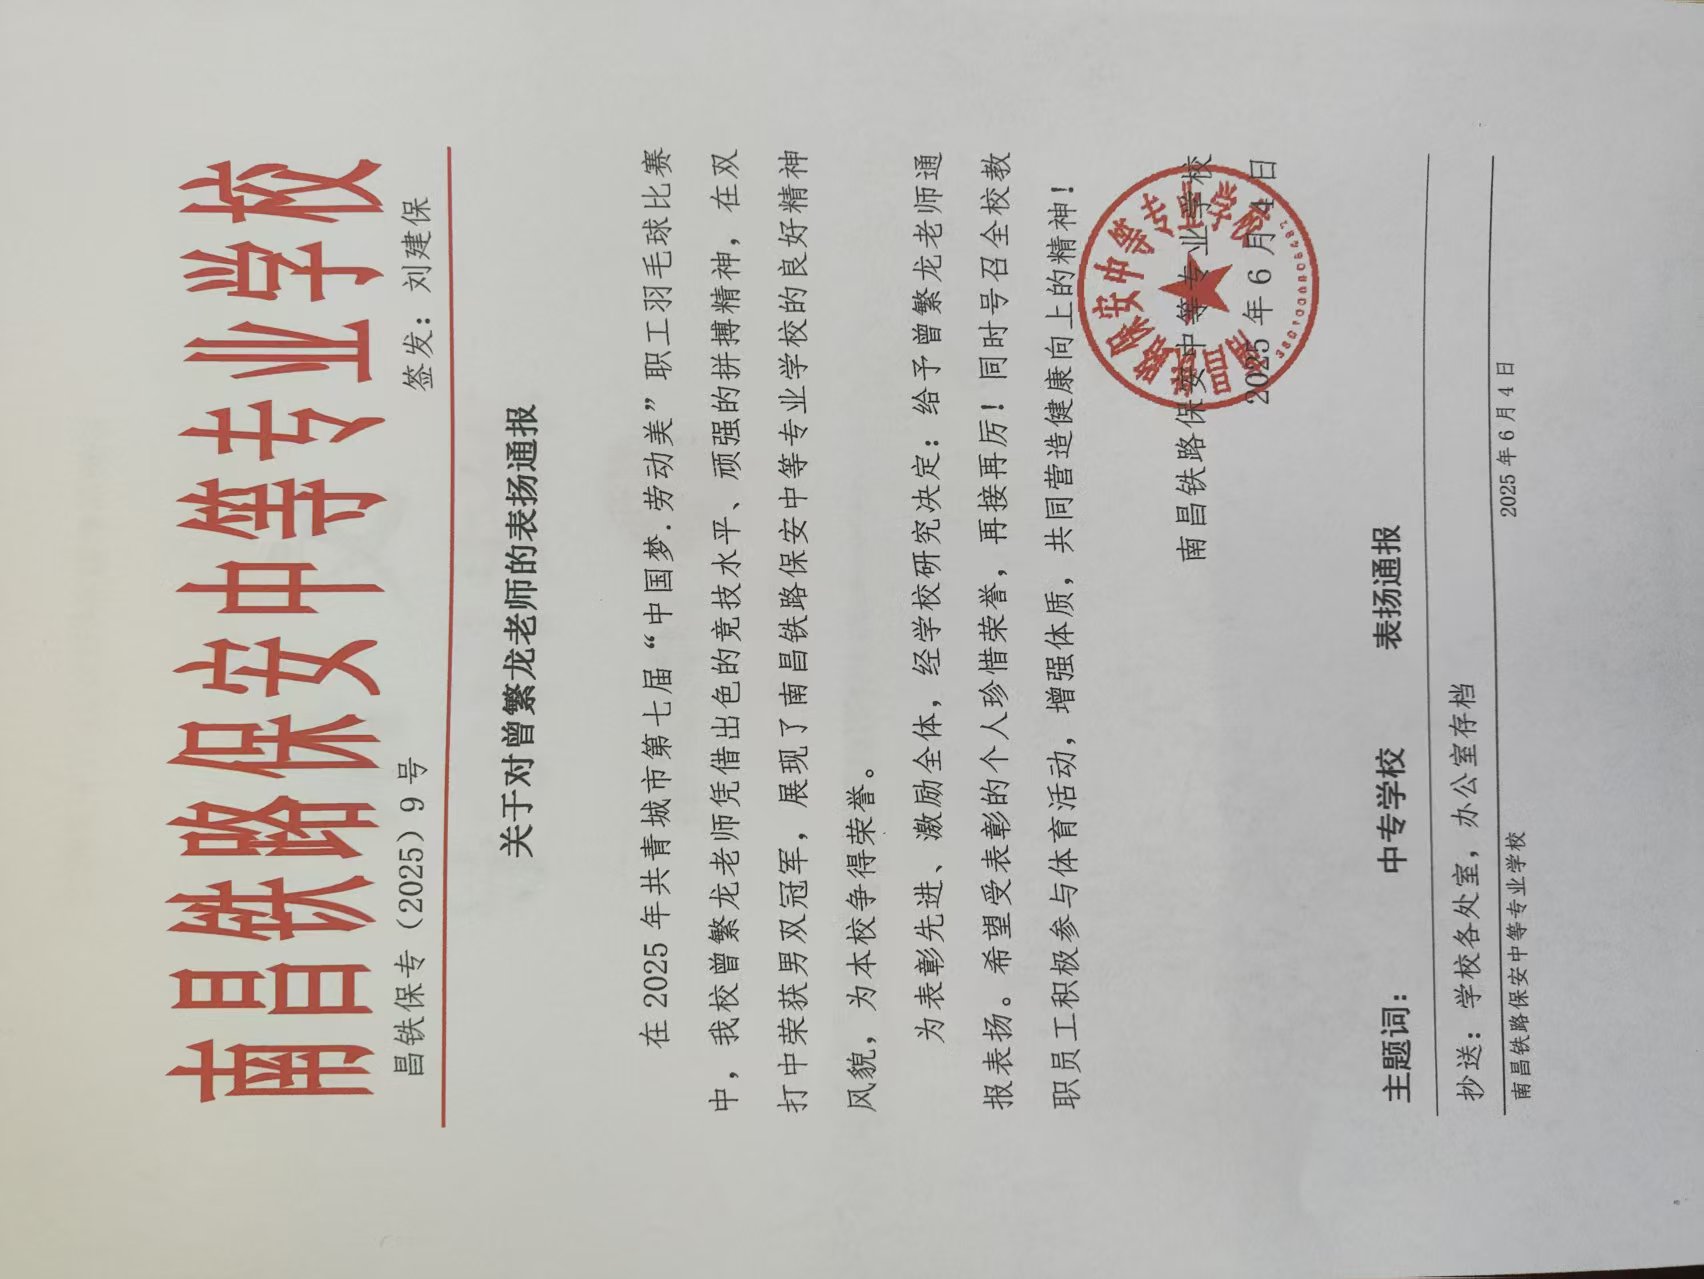 南昌铁路保安中等专业学校
昌铁保专（2025）9号 签发：刘建保
关于对曾繁龙老师的表扬通报
在 2025 年共青城市第七届“中国梦.劳动美”职工羽毛球比赛
中，我校曾繁龙老师凭借出色的竞技水平、顽强的拼搏精神，在双
打中荣获男双冠军，展现了南昌铁路保安中等专业学校的良好精神
风貌，为本校争得荣誉。
为表彰先进、激励全体，经学校研究决定：给予曾繁龙老师通
报表扬。希望受表彰的个人珍惜荣誉，再接再厉！同时号召全校教
职员工积极参与体育活动，增强体质，共同营造健康向上的精神！
南昌铁路保安中等专业学校
2025 年 6 月 4 日
南昌铁路保安中等专业学校
主题词： 中专学校 表扬通报
抄送：学校各处室，办公室存档
南昌铁路保安中等专业学校 2025 年 6 月 4 日